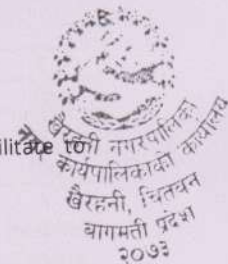 ilitate to
खैरहनी नगरपालिका
नगर कार्यपालिकाको कार्यालय
खैरहनी, चितवन
बागमती प्रदेश
२०७३